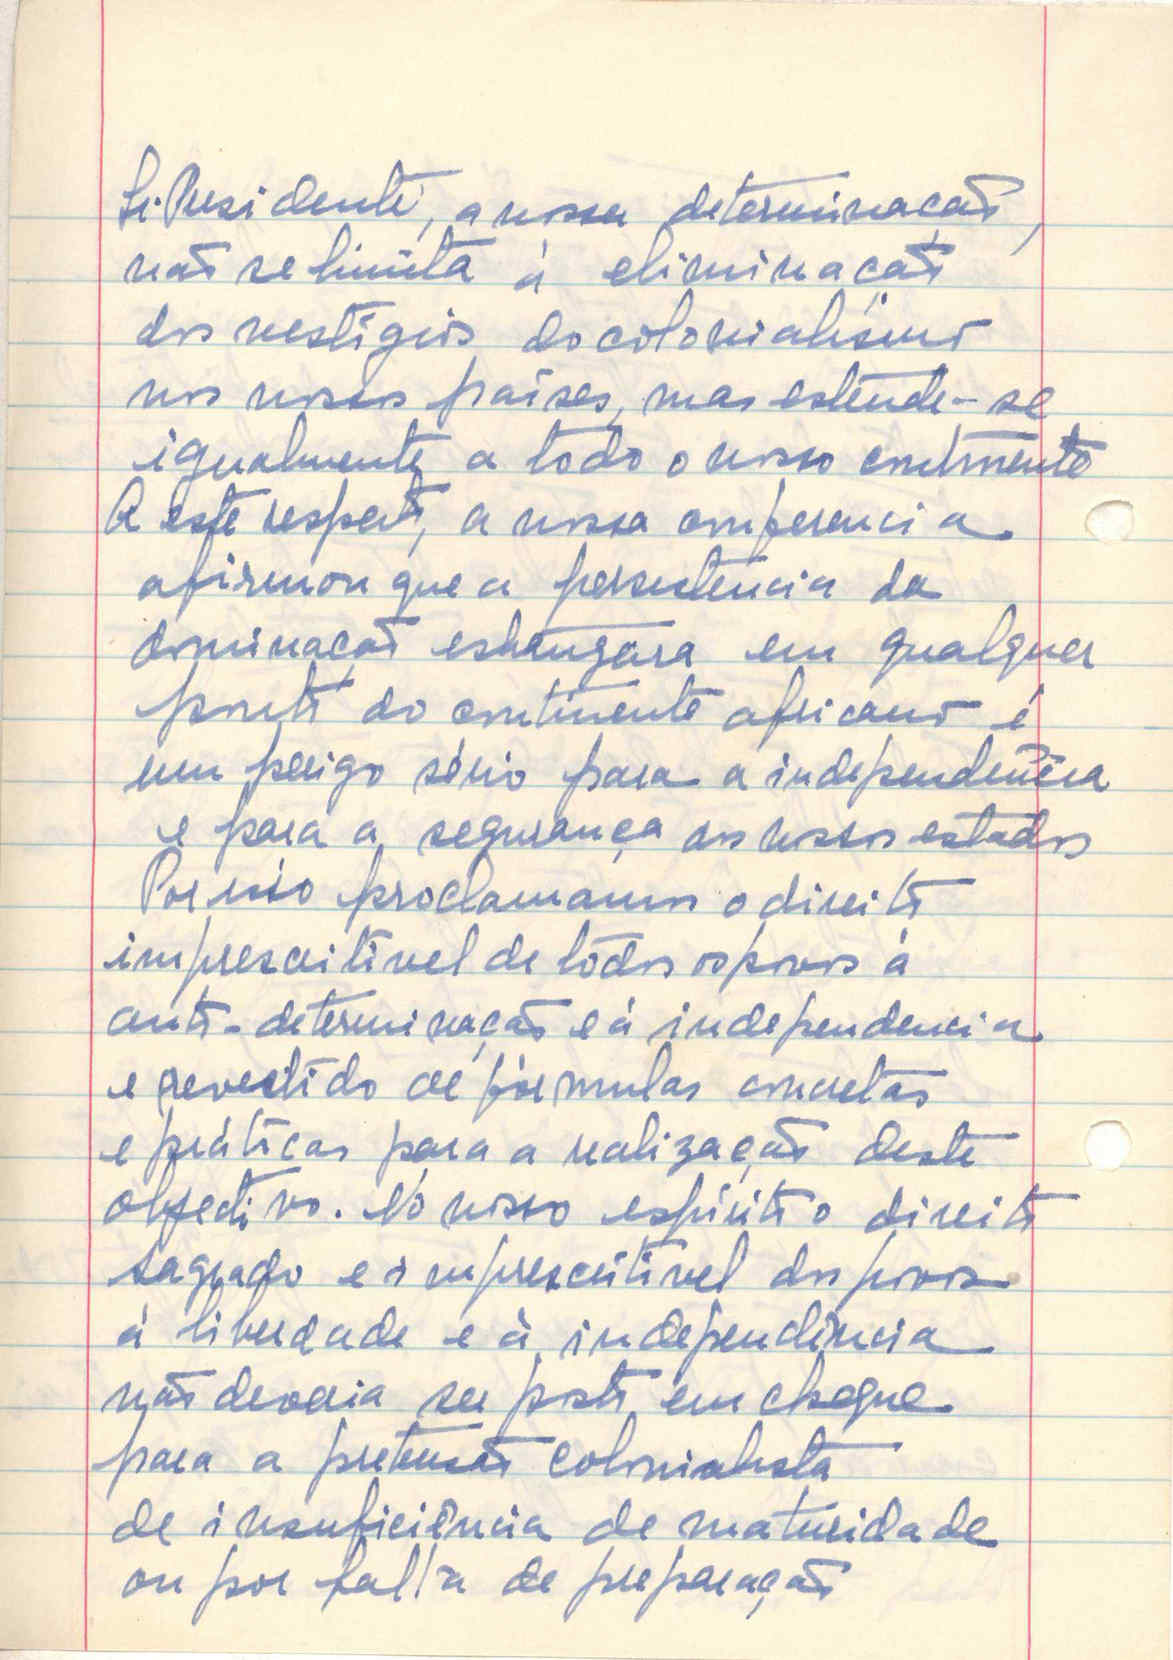 Sr. Presidente, a nossa determinação,
não se limita à eliminação
dos vestígios do colonialismo
nos nossos países, mas estende-se
igualmente a todo o nosso continente
A este respeito, a nossa conferencia
afirmou que a persistência da
dominação estrangeira em qualquer
ponto do continente africano é
um perigo sério para a independência
e para a segurança dos nossos estados
Por isso proclamamos o direito
imprescritivel de todos os povos à
auto-determinação e à independencia
e revestido de fórmulas concretas
e práticas para a realização deste
objectivo. No nosso espírito o direito
sagrado e imprescritivel dos povos
à liberdade e à independência
não deveria ser posto em cheque
para a pretensão colonialista
de insuficiência de maturidade
ou por falta de preparação